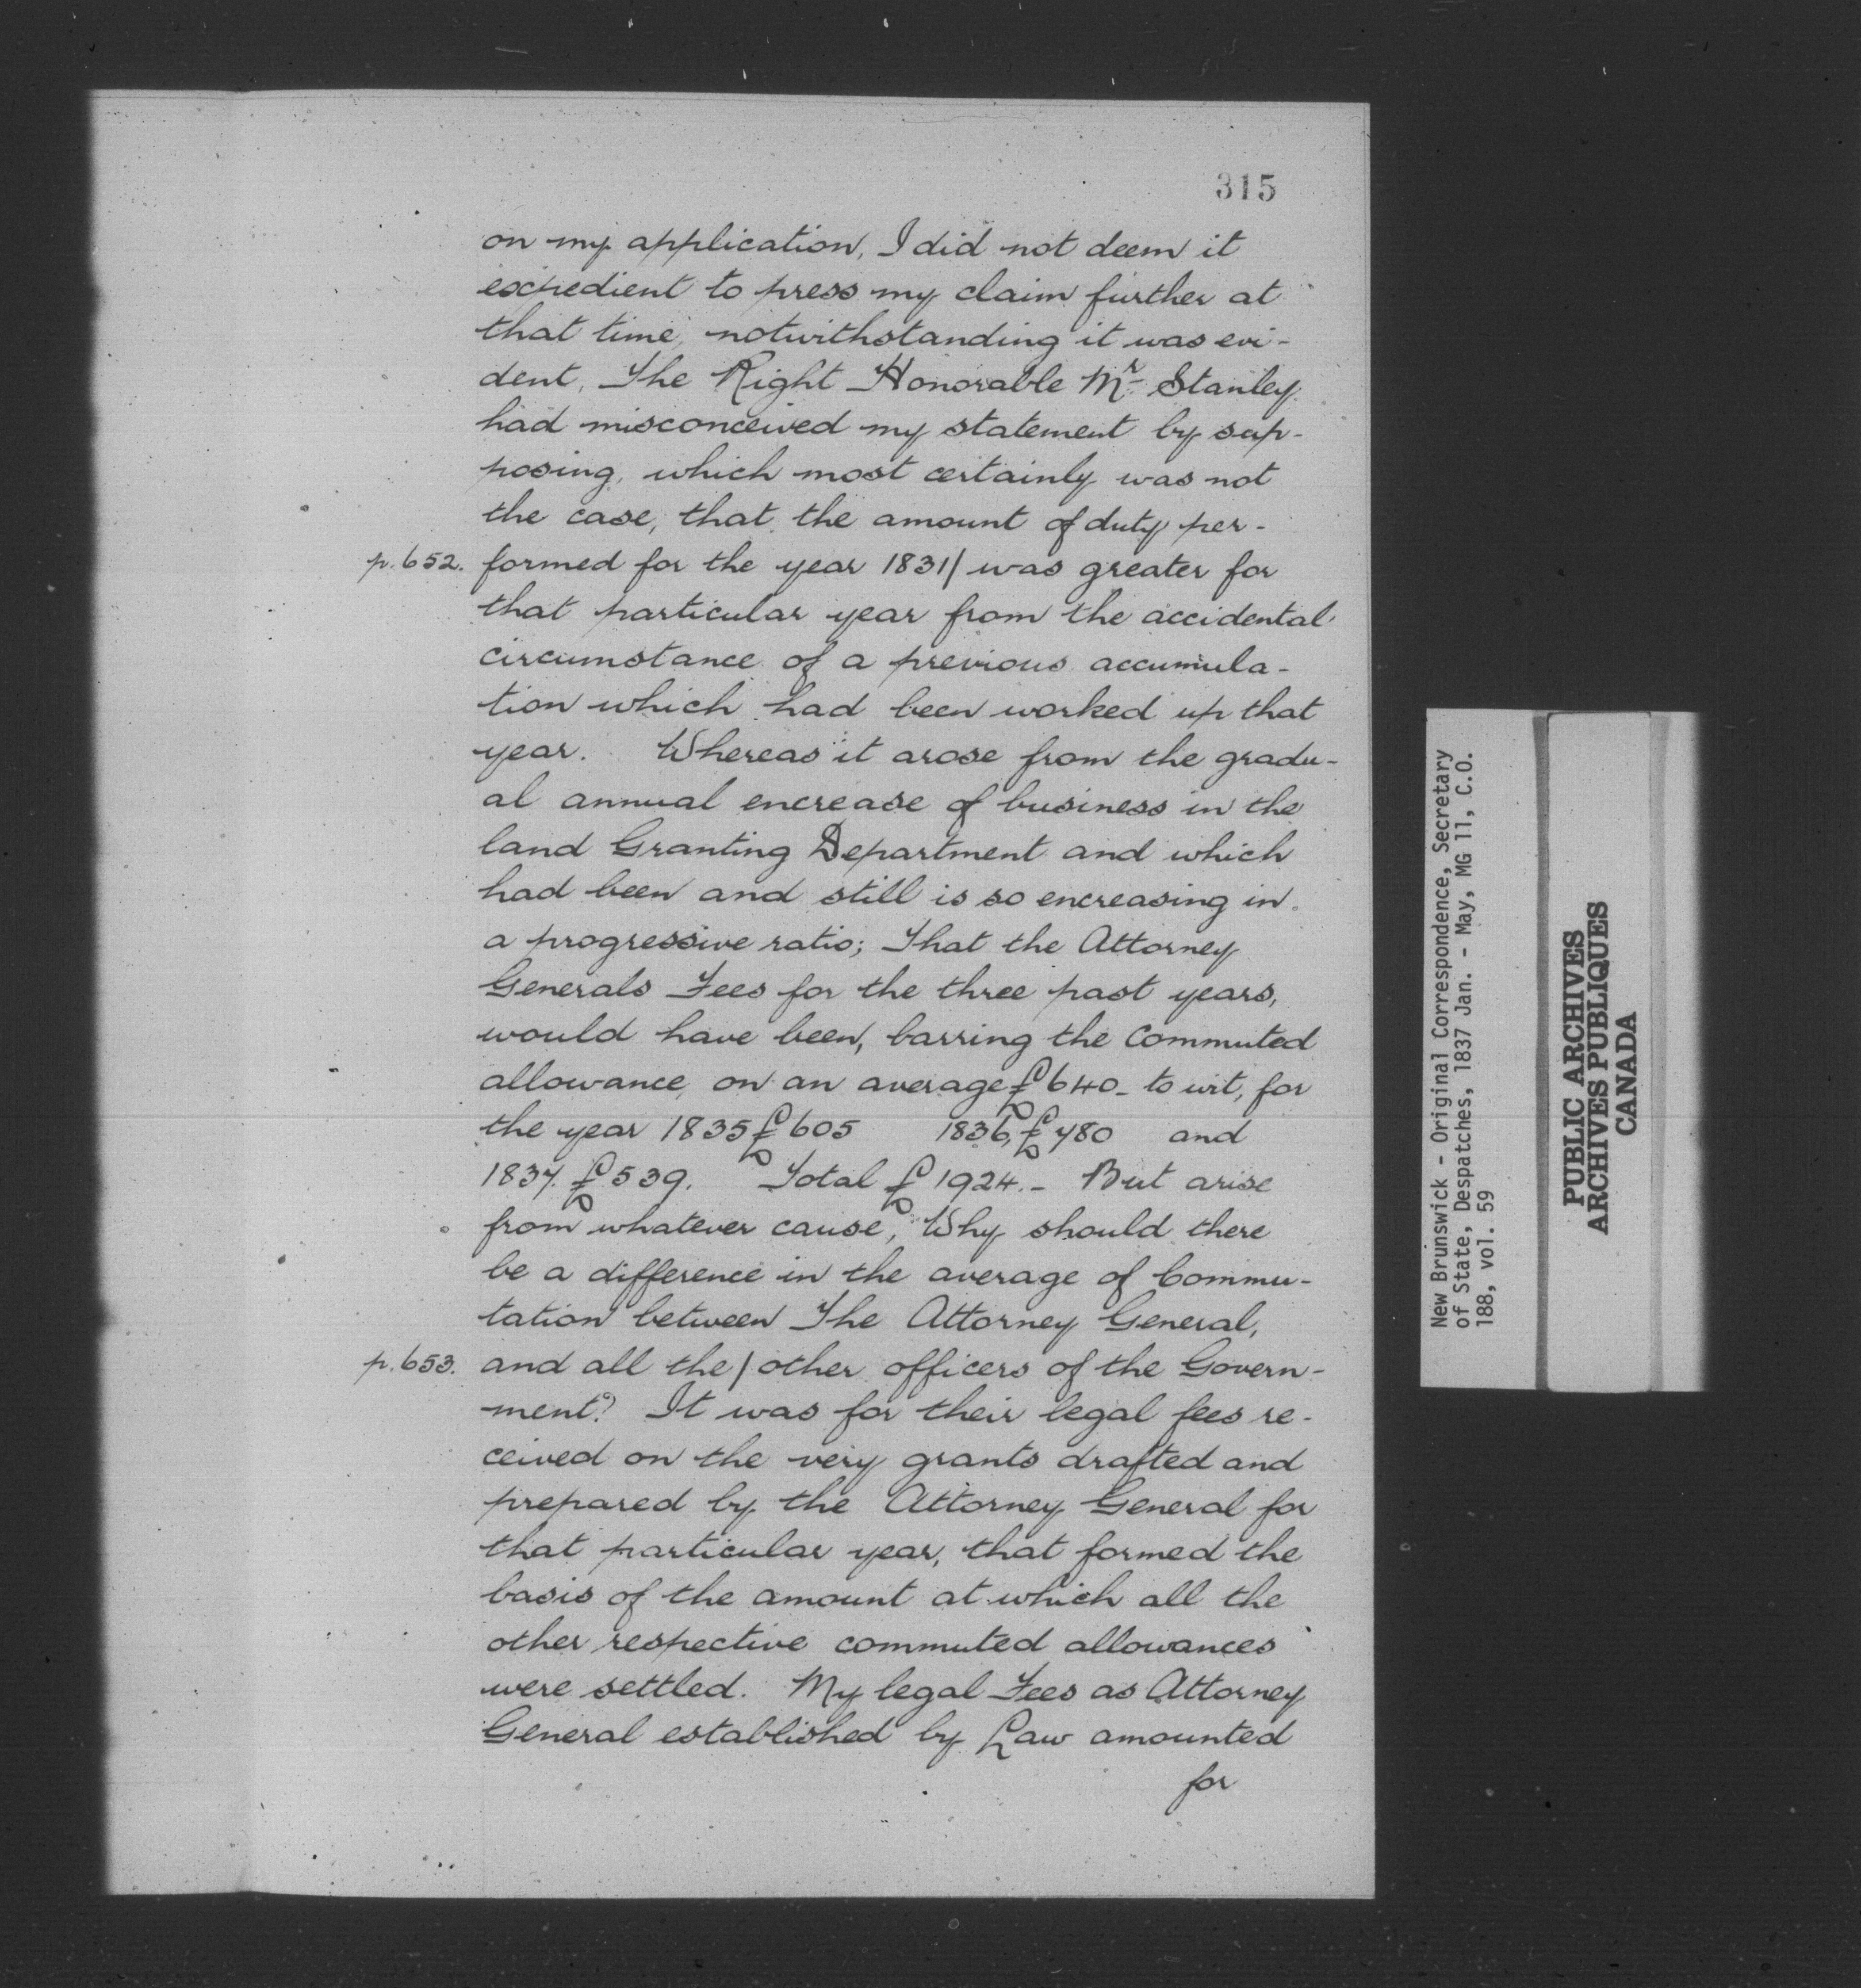 315
on my application, I did not deem it
expedient to press my claim further at
that time, notwithstanding it was evi-
dent, The Right Honorable Mr Stanley
had misconceived my statement by sup-
posing, which most certainly was not
the case, that the amount of duty per-
p. 652. formed for the year 1831/ was greater for
that particular year from the accidental
circumstance of a previous accumula-
tion which had been worked up that
year. Whereas it arose from the gradu-
al annual encrease of business in the
land Granting Department and which
had been and still is so encreasing in
a progressive ratio; That the Attorney
Generals Fees for the three past years,
would have been, barring the Commuted
allowance, on an average £640 - to wit, for
the year 1835 £605 1836, £780 and
1837. £539. Total £1924. - But arise
from whatever cause, Why should there
be a difference in the average of Commu-
tation between The Attorney General,
p. 653. and all the / other officers of the Govern-
ment? It was for their legal fees re-
ceived on the very grants drafted and
prepared by the Attorney General for
that particular year, that formed the
basis of the amount at which all the
other respective commuted allowances
were settled. My legal Fees as Attorney
General established by Law amounted
for
New Brunswick - Original Correspondence, Secretary
of State, Despatches, 1837 Jan. - May, MG 11, C.O.
188, vol. 59
PUBLIC ARCHIVES
ARCHIVES PUBLIQUES
CANADA